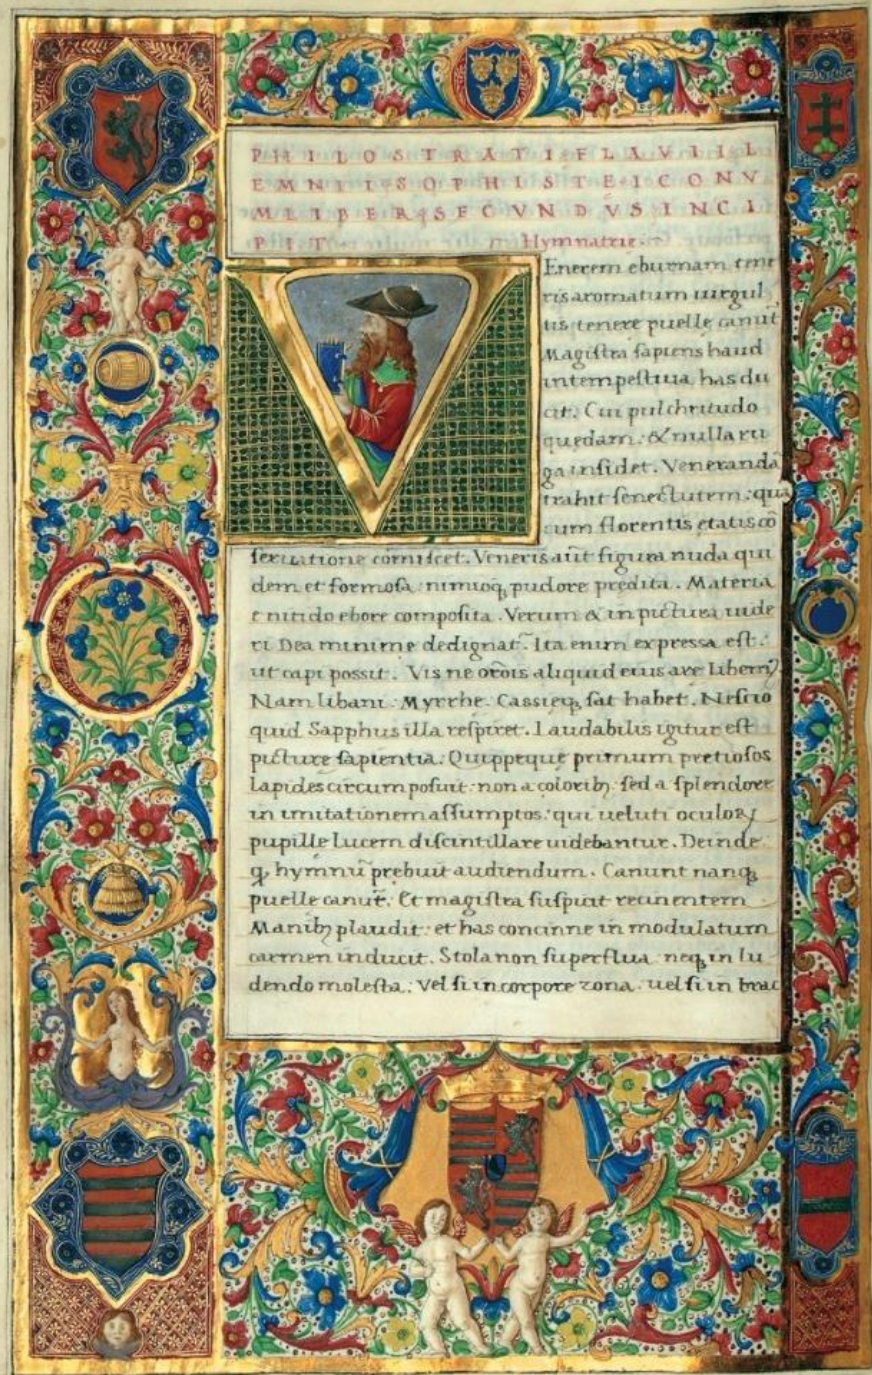 PHILOSTRATI FLAVII L
EMNII SOPHISTE ICONV
M LIBER SECVNDVS INCI
PIT Hymnatrie.
Enerem eburnam tene
ris aromatum uirgul
tis tenere puelle canūt
Magistra sapiens haud
intempestiua has du
cit. Cui pulchritudo
quedam: & nulla ru
ga insidet. Venerandā
trahit senectutem: quā
cum florentis etatis cō
seruatione comiscet. Veneris aūt figura nuda qui
dem et formosa: nimioq; pudore predita. Materia
e nitido ebore composita. Verum & in pictura uide
ri Dea minime dedignat. Ita enim expressa est:
ut capi possit. Vis ne orōis aliquid eius are liberī
Nam libani: Myrrhe: Cassieq; sat habet. Nescio
quid Sapphus illa respiret. Laudabilis igitur est
picture sapientia. Quippeque primum pretiosos
lapides circumposuit: non a colorib; sed a splendore
in imitationem assumptos: qui ueluti oculoꝝ
pupille lucem discintillare uidebantur. Deinde
q; hymnū prebuit audiendum. Canunt nanq;
puelle canūt. Et magistra suspicit recinentem
Manib; plaudit: et has concinne in modulatum
carmen inducit. Stola non superflua: neq; in lu
dendo molesta: Vel si in corpore zona: uel si in brac